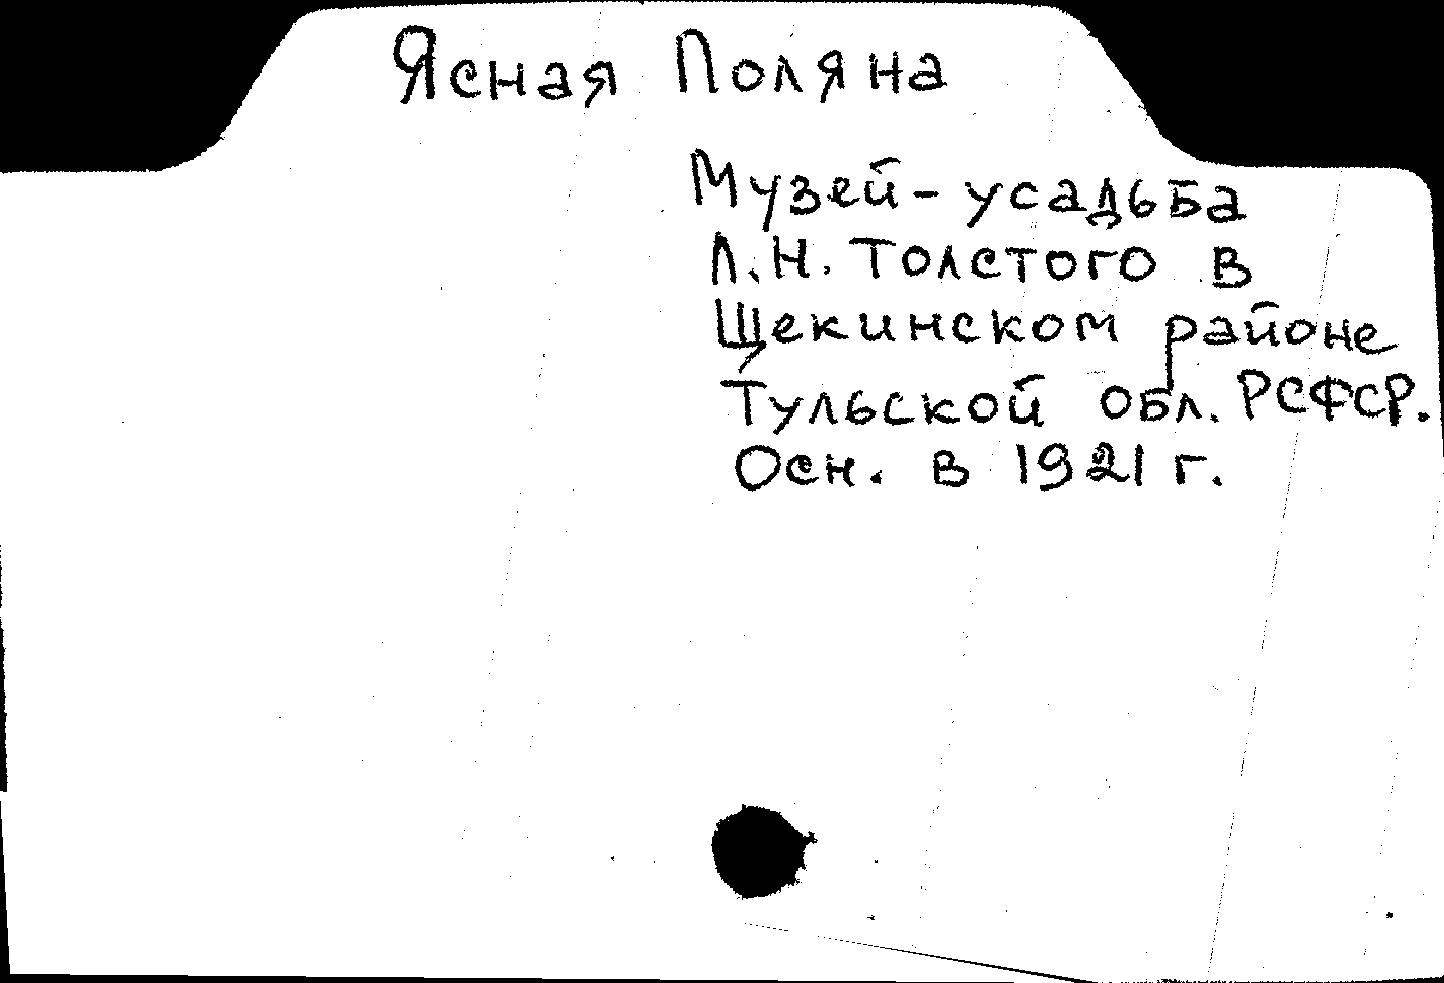 Ясная Поляна
Музей-усадьба
Л.Н. Толстого в
Щекинском районе
Тульской обл. РСФСР.
Осн. в 1921 г.